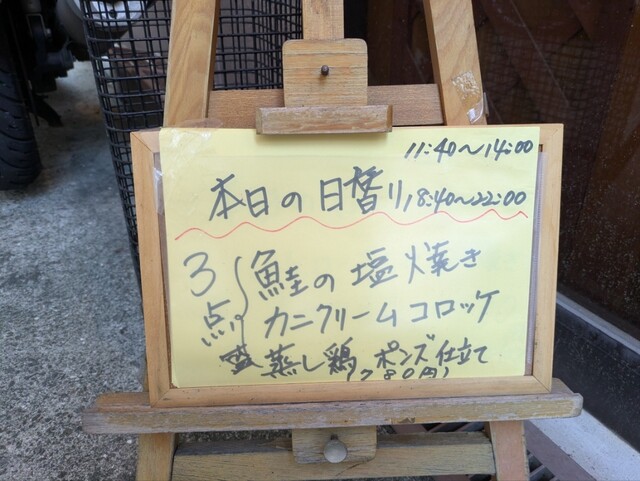 11:40〜14:00
本日の日替り 18:40〜22:00
3点盛
鮭の塩焼き
カニクリームコロッケ
蒸し鶏 ポンズ仕立て
(780円)